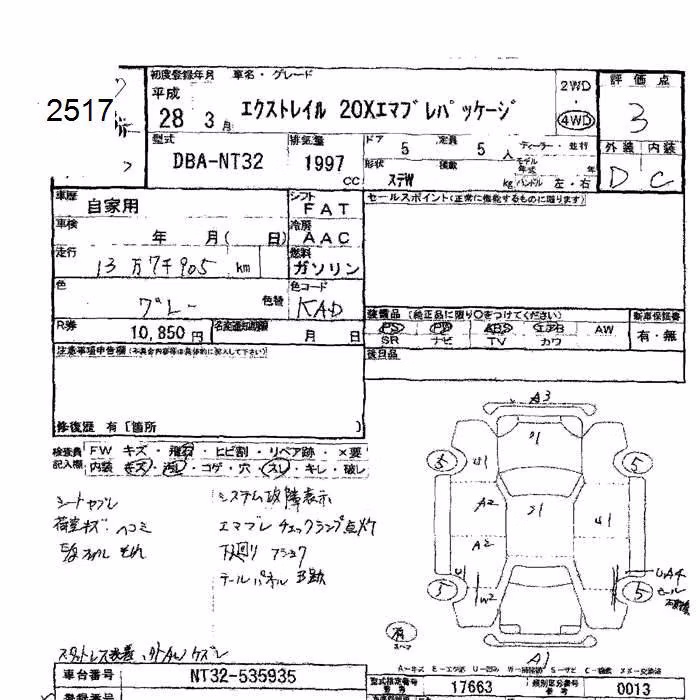 2517
初度登録年月 車名・グレード
平成
28 3月 エクストレイル 20Xエマブレパッケージ
2WD
4WD
評価点
3
外装 内装
D C
型式 排気量 ドア 定員 ディーラー・並行
DBA-NT32 1997 CC 5 5人 モデル年式 年
形状 積載
ステW kg ハンドル 左・右
車歴 シフト セールスポイント(正常に機能するものに限ります)
自家用 FAT
車検 冷房
年 月( 日) AAC
走行 燃料
13万7千905 km ガソリン
色 色替 色コード
グレー KAD
装備品(純正品に限り○をつけてください) 新車保証書
PS PW ABS エアB AW 有・無
SR ナビ TV カワ
R券 10,850円 名変通知期限 月 日
後日品
注意事項申告欄(不具合内容等は具体的に記入して下さい)
修復歴 有[箇所 ]
検査員記入欄 FW キズ・飛石・ヒビ割・リペア跡・×要
内装 キズ・汚レ・コゲ・穴・スレ・キレ・破レ
シートヤブレ システム故障表示
荷室キズ・ヘコミ エマブレ チェックランプ点灯
下廻り
テールパネル
A3
U1
A2
A2
U1
U
W2
UA4
5 5
5 5
A1
A-キズ E-エクボ U-凹ミ
車台番号 NT32-535935
型式指定番号 17663 類別区分番号 0013
登録番号